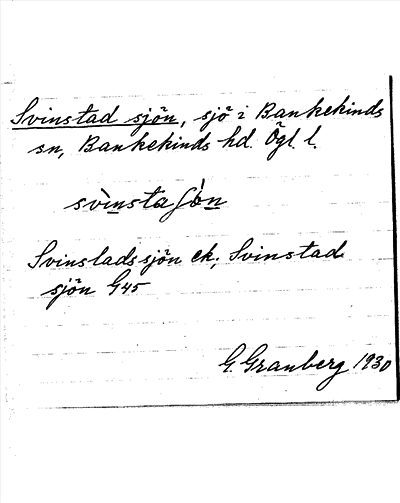 Svinstad sjön, sjö i Bankekinds
sn, Bankekinds hd. Ögl. l.
svìnstaʃò̀n
Svinstadssjön ek; Svinstad
sjön G45
G. Granberg 1930